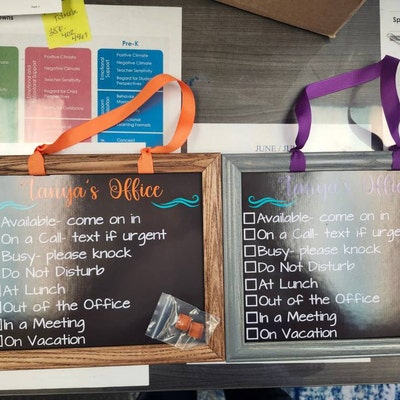 Pre-K
Positive Climate
Negative Climate
Teacher Sensitivity
Regard for Child Perspectives
Positive Climate
Negative Climate
Teacher Sensitivity
Emotional Support
JUNE /
Tanya's Office
Available- come on in
On a Call- text if urgent
Busy- please knock
Do Not Disturb
At Lunch
Out of the Office
In a Meeting
On Vacation
Tanya's Office
Available- come on in
On a Call- text if urgent
Busy- please knock
Do Not Disturb
At Lunch
Out of the Office
In a Meeting
On Vacation